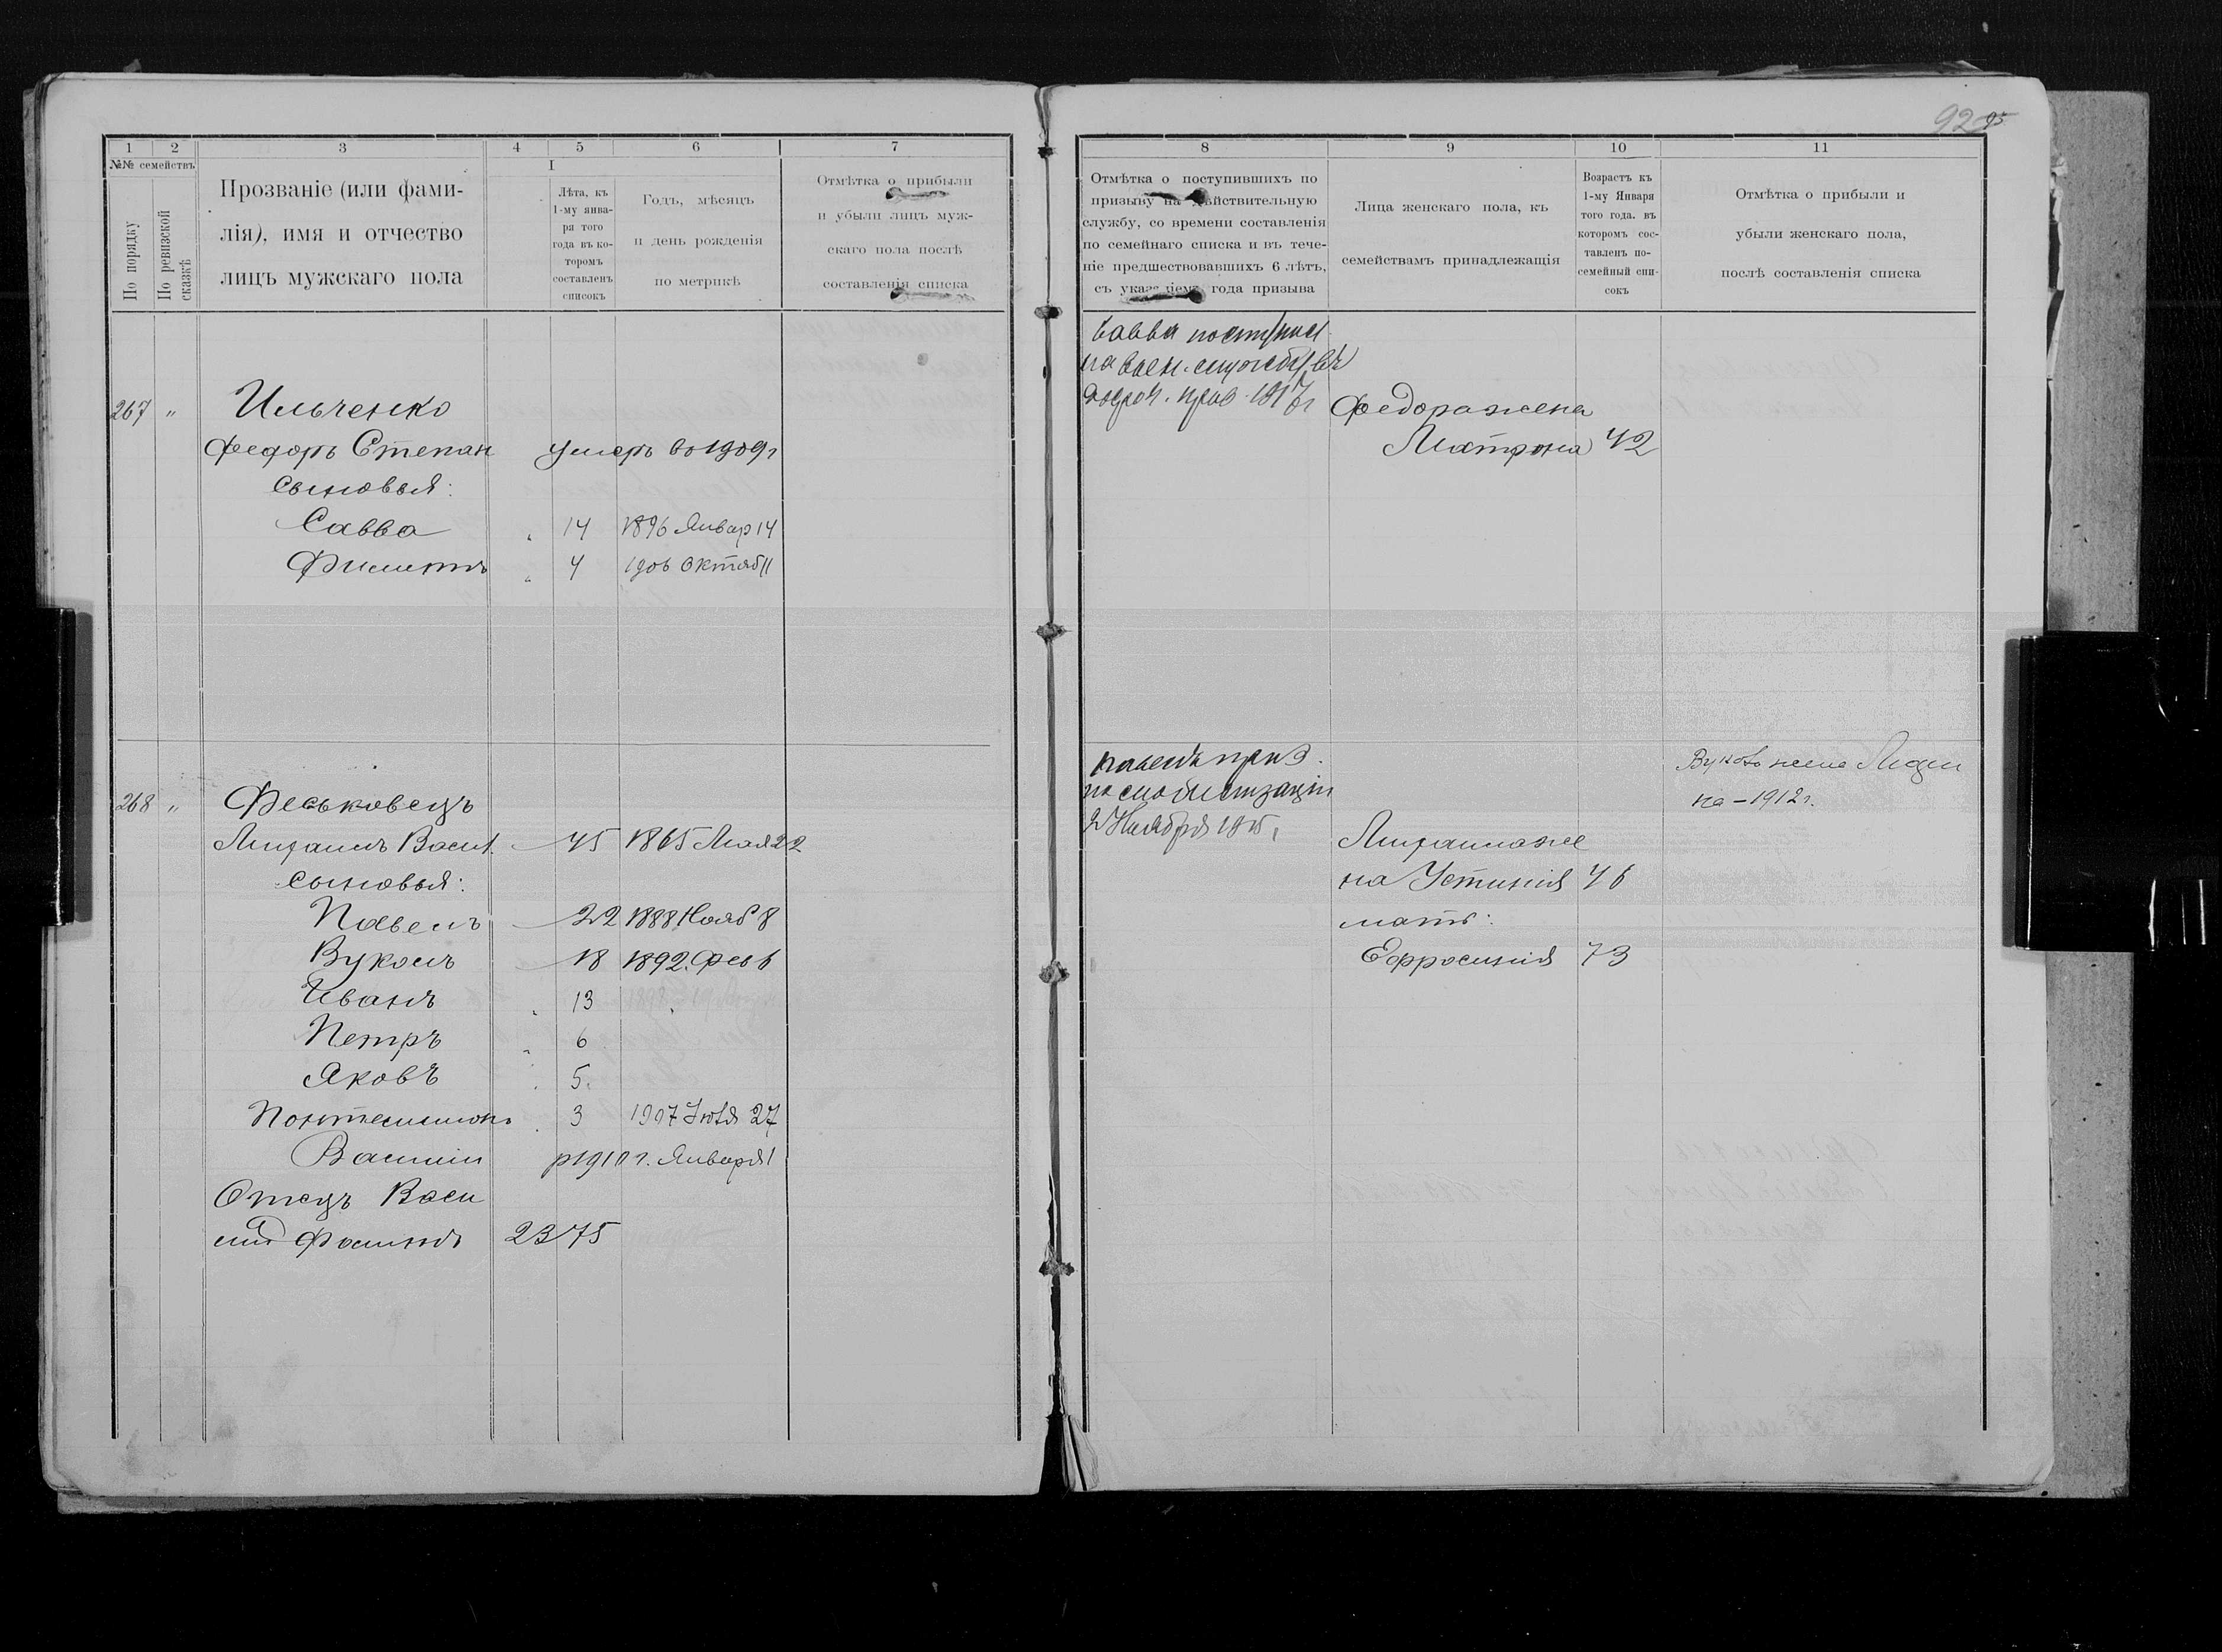 92 95
1 2 3 4 5 6 7
№№ семействъ
По порядку
По ревизской сказкѣ
Прозваніе (или фами-
лія), имя и отчество
лицъ мужскаго пола
I
Лѣта, къ
1-му янва-
ря того
года въ ко-
торомъ
составленъ
списокъ
Годъ, мѣсяцъ
и день рожденія
по метрикѣ
Отмѣтка о прибыли
и убыли лицъ муж-
скаго пола послѣ
составленія списка
267 " Ильченко
Федоръ Степан умеръ въ 1909 г
сыновья:
Савва " 14 1896 Январ 14
Филиппъ " 4 1906 Октяб 11
268 " Феськовецъ
Михаилъ Васил. 45 1865 Мая 22
сыновья:
Павелъ 22 1888 Нояб 8
Вуколъ 18 1892. Фев 6
Иванъ " 13
Петръ " 6
Яковъ " 5.
Понтелимонъ " 3 1907 Іюля 27
Василій р 1910 г. Января 1
Отецъ Васи
лій 23 75
8 9 10 11
Отмѣтка о поступившихъ по
призыву на дѣйствительную
службу, со времени составленія
по семейнаго списка и въ тече-
ніе предшествовавшихъ 6 лѣтъ,
съ указаніемъ года призыва
Лица женскаго пола, къ
семействамъ принадлежащія
Возрастъ къ
1-му Января
того года. въ
которомъ сос-
тавленъ по-
семейный спи-
сокъ
Отмѣтка о прибыли и
убыли женскаго пола,
послѣ составленія списка
Савва поступил
на воен. службу въ
досроч. приз.
Федора жена
Матрона 42
Павелъ приз.
по мобилизаціи
2 Ноября 1915 г
Вукола жена
на - 1912 г.
Михаила же
на Устинія 46
мать:
Ефросинія 73